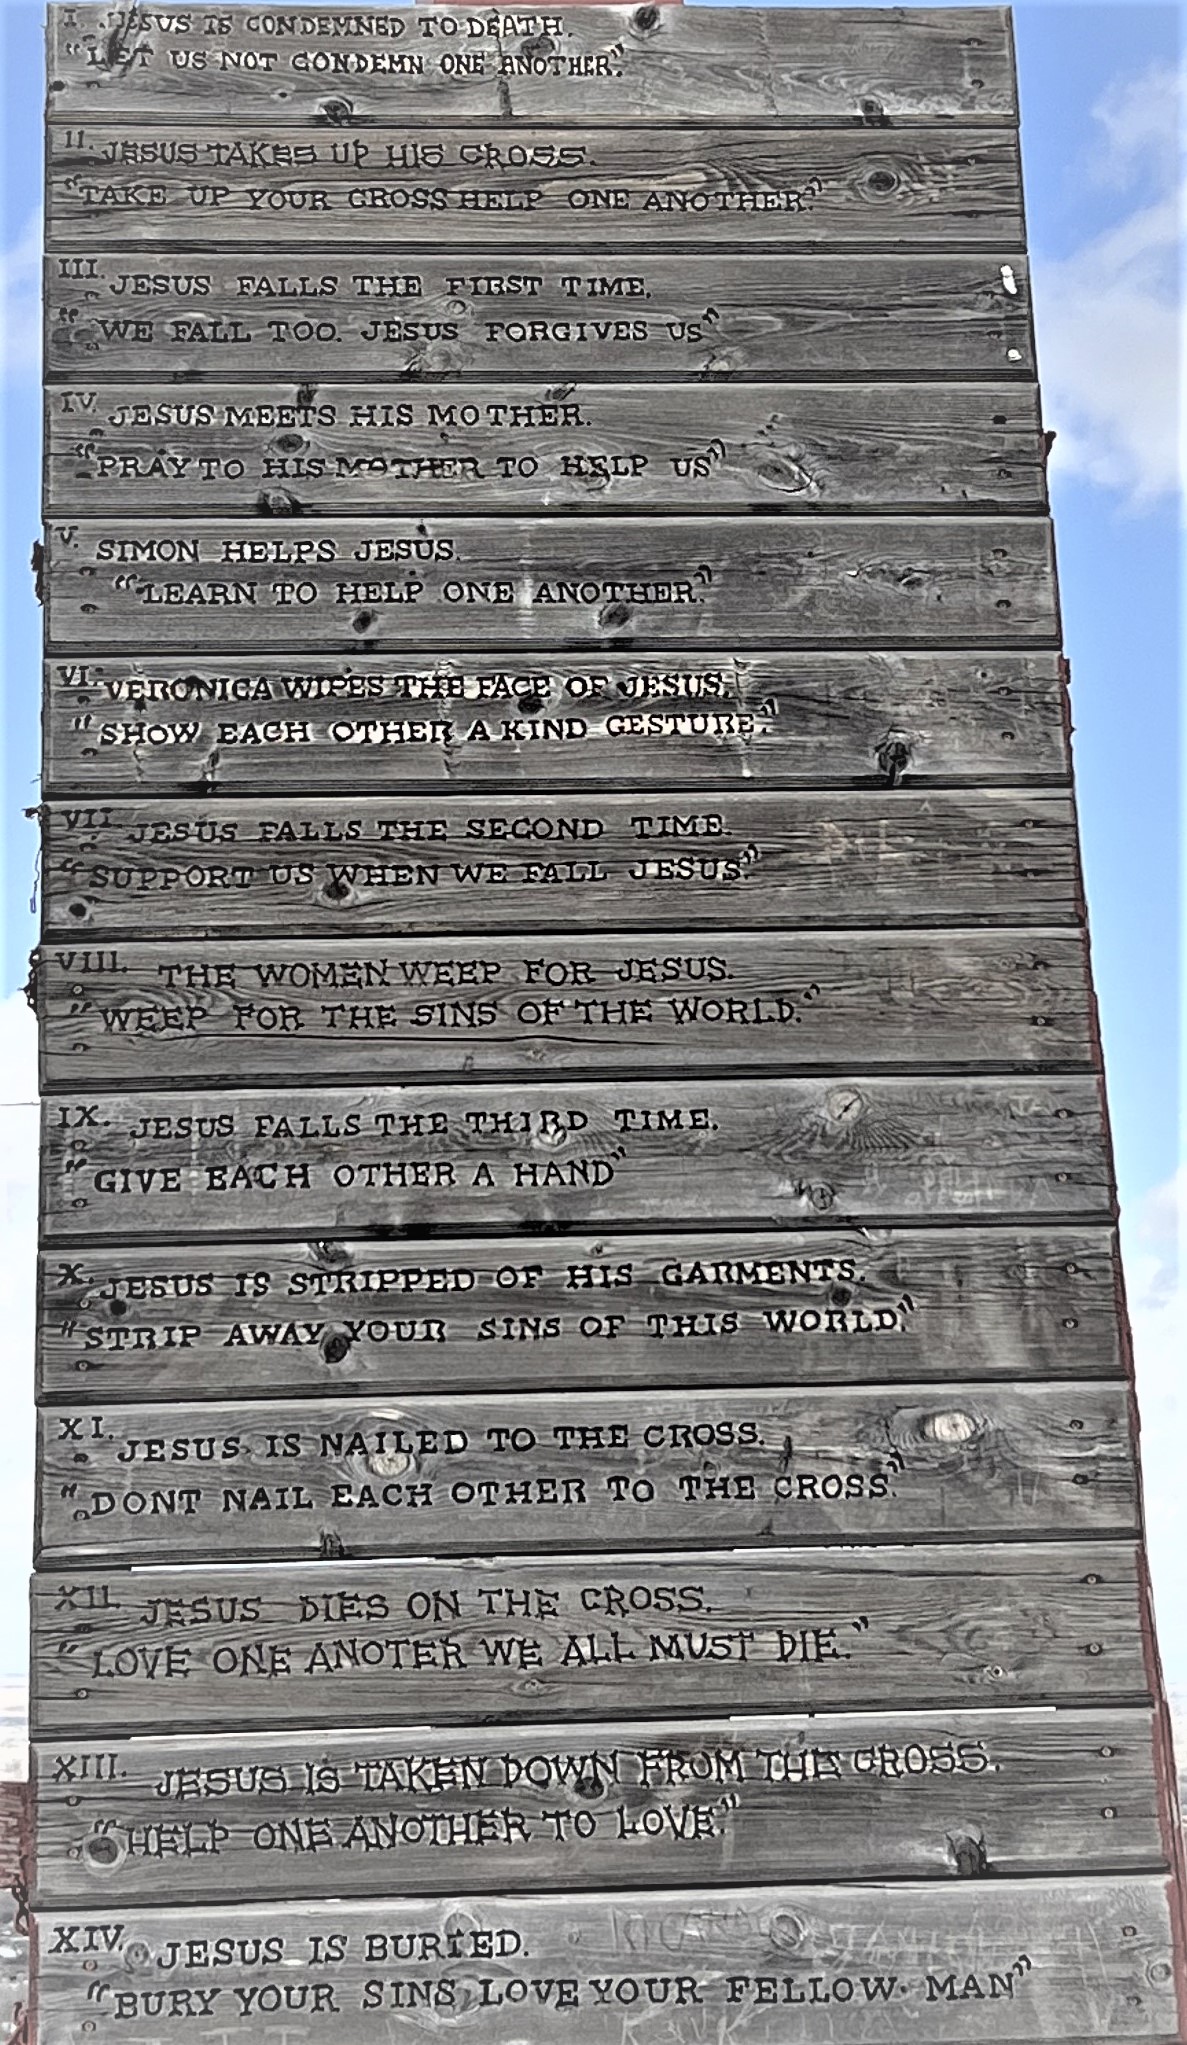 I. JESUS IS CONDEMNED TO DEATH.
"LET US NOT CONDEMN ONE ANOTHER."
II. JESUS TAKES UP HIS CROSS.
"TAKE UP YOUR CROSS HELP ONE ANOTHER."
III. JESUS FALLS THE FIRST TIME.
"WE FALL TOO. JESUS FORGIVES US"
IV. JESUS MEETS HIS MOTHER.
"PRAY TO HIS MOTHER TO HELP US"
V. SIMON HELPS JESUS.
"LEARN TO HELP ONE ANOTHER."
VI. VERONICA WIPES THE FACE OF JESUS.
"SHOW EACH OTHER A KIND GESTURE."
VII. JESUS FALLS THE SECOND TIME.
"SUPPORT US WHEN WE FALL JESUS."
VIII. THE WOMEN WEEP FOR JESUS.
"WEEP FOR THE SINS OF THE WORLD."
IX. JESUS FALLS THE THIRD TIME.
"GIVE EACH OTHER A HAND"
X. JESUS IS STRIPPED OF HIS GARMENTS.
"STRIP AWAY YOUR SINS OF THIS WORLD."
XI. JESUS IS NAILED TO THE CROSS.
"DONT NAIL EACH OTHER TO THE CROSS."
XII. JESUS DIES ON THE CROSS.
"LOVE ONE ANOTER WE ALL MUST DIE."
XIII. JESUS IS TAKEN DOWN FROM THE CROSS.
"HELP ONE ANOTHER TO LOVE."
XIV. JESUS IS BURIED.
"BURY YOUR SINS, LOVE YOUR FELLOW MAN"